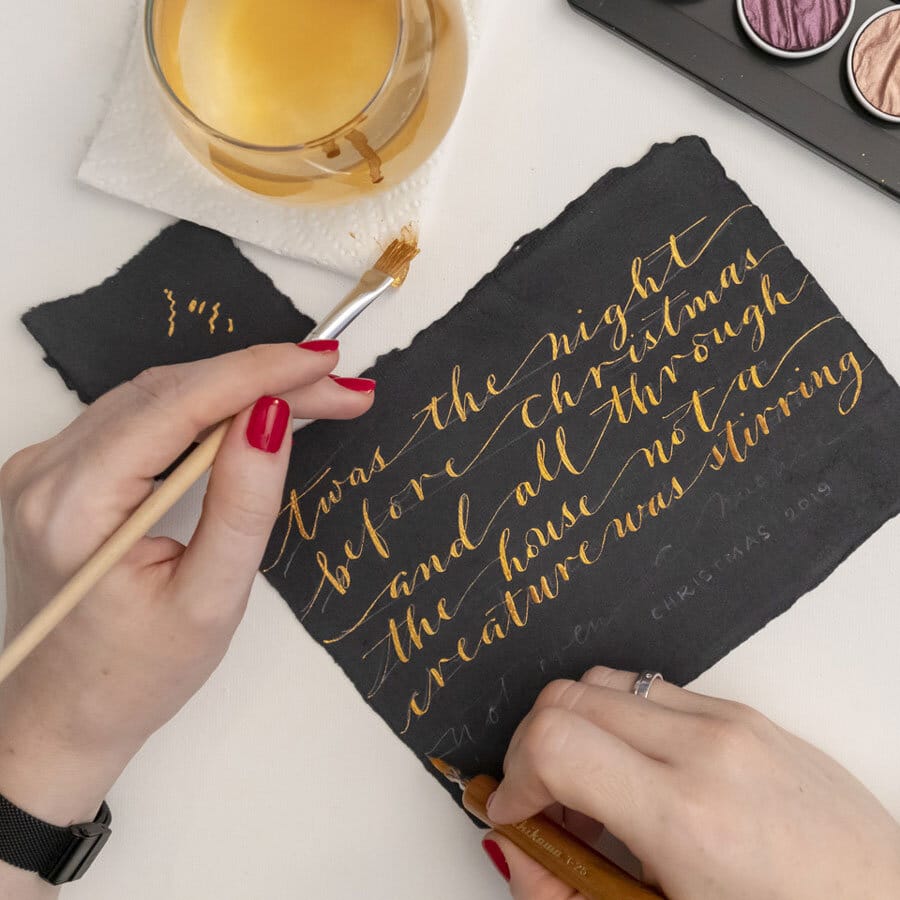 twas the night
before Christmas
and all through
the house not a
creature was stirring
Not even a mouse
CHRISTMAS 2019